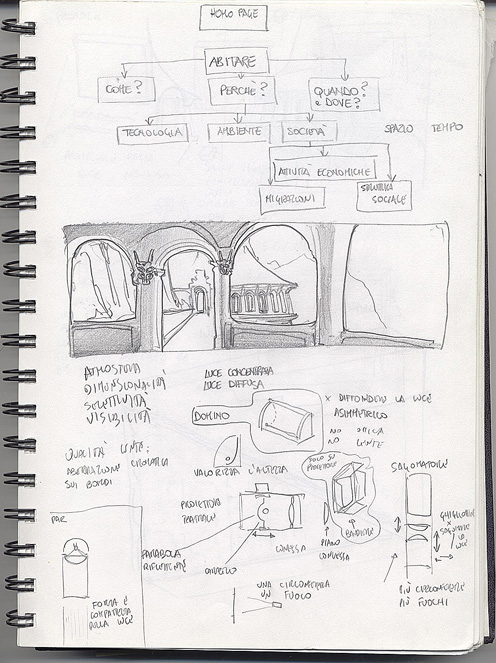 HOME PAGE
ABITARE
COME?
PERCHÈ?
QUANDO?
e DOVE?
TECNOLOGIA
AMBIENTE
SOCIETÀ
SPAZIO TEMPO
ATTIVITÀ ECONOMICHE
MIGRAZIONI
SOCIALE
ATMOSFERA
DIMENSIONALITÀ
SELETTIVITÀ
VISIBILITÀ
LUCE CONCENTRATA
LUCE DIFFUSA
DOMINO
x DIFFONDERE LA LUCE
ASIMMETRICO
NO OTTICA
NO LENTE
QUALITÀ LENTE:
ABERRAZIONE CROMATICA
SUI BORDI
VALORIZZA L'ALTEZZA
SOLO SU
PROIETTORE
BANDIERE
SAGOMATORE
PROIETTORE
TEATRALE
PARABOLA
RIFLETTENTE
CONVESSA
PIANO
CONVESSA
GHIGLIOTTINE
LA
LUCE
PAR
FORMA E
COMPATTEZZA
DELLA LUCE
UNA CIRCONFERENZA
UN FUOCO
PIÙ CIRCONFERENZE
PIÙ FUOCHI